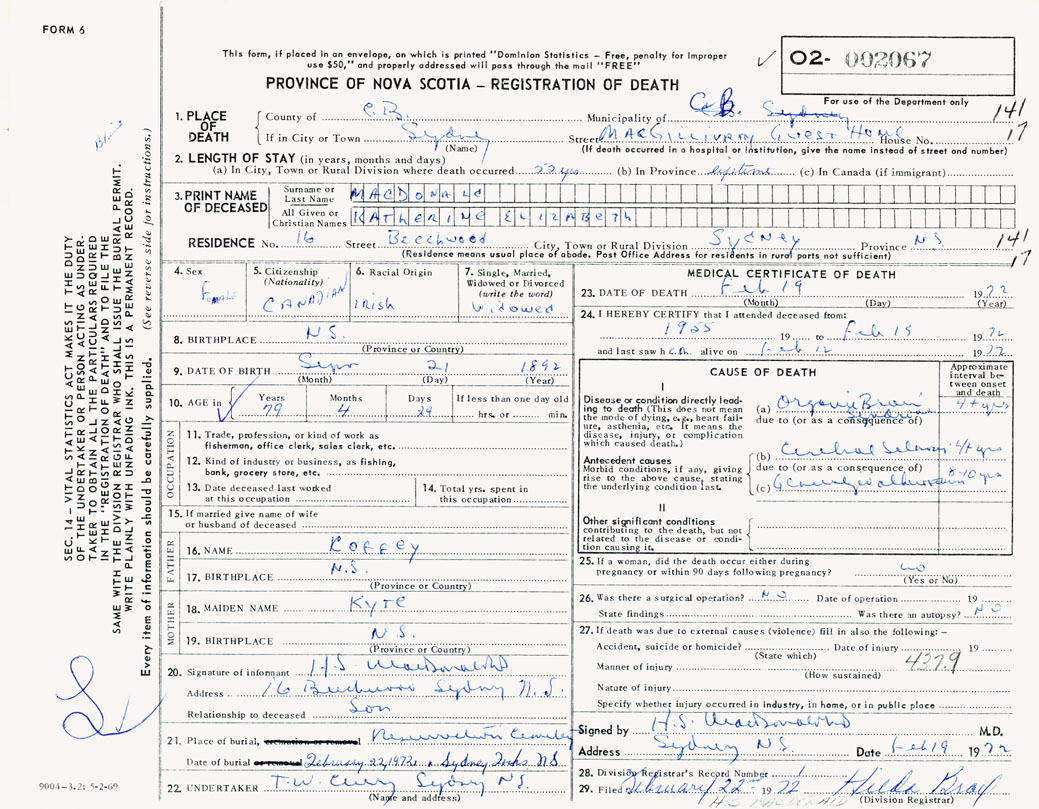 FORM 6
This form, if placed in an envelope, on which is printed "Dominion Statistics – Free, penalty for improper
use $50," and properly addressed will pass through the mail "FREE"
02- 002067
For use of the Department only
PROVINCE OF NOVA SCOTIA – REGISTRATION OF DEATH
1. PLACE OF DEATH
County of C.B. Municipality of C.B. Sydney 141
If in City or Town Sydney Street MacGillivray Guest Home House No. 17
(Name) (If death occurred in a hospital or institution, give the name instead of street and number)
2. LENGTH OF STAY (in years, months and days)
(a) In City, Town or Rural Division where death occurred 55 yrs (b) In Province lifetime (c) In Canada (if immigrant)
3. PRINT NAME OF DECEASED
Surname or Last Name MACDONALD
All Given or Christian Names KATHERINE ELIZABETH
RESIDENCE No. 16 Street Beechwood City, Town or Rural Division Sydney Province N.S. 141
(Residence means usual place of abode. Post Office Address for residents in rural parts not sufficient) 17
4. Sex Female
5. Citizenship (Nationality) CANADIAN
6. Racial Origin Irish
7. Single, Married, Widowed or Divorced (write the word) Widowed
8. BIRTHPLACE N.S.
(Province or Country)
9. DATE OF BIRTH Sept 21 1892
(Month) (Day) (Year)
10. AGE in Years 79 Months 4 Days 29 If less than one day old hrs. or min.
OCCUPATION
11. Trade, profession, or kind of work as
fisherman, office clerk, sales clerk, etc.
12. Kind of industry or business, as fishing,
bank, grocery store, etc.
13. Date deceased last worked at this occupation
14. Total yrs. spent in this occupation
15. If married give name of wife
or husband of deceased
FATHER
16. NAME Koffey
17. BIRTHPLACE N.S.
(Province or Country)
MOTHER
18. MAIDEN NAME Kyte
19. BIRTHPLACE N.S.
(Province or Country)
20. Signature of informant H.S. MacDonald
Address 16 Beechwood Sydney N.S.
Relationship to deceased Son
21. Place of burial, cremation or removal
Date of burial or removal February 22, 1972 Sydney N.S.
22. UNDERTAKER T.W. Curry Sydney N.S.
(Name and address)
MEDICAL CERTIFICATE OF DEATH
23. DATE OF DEATH Feb 19 1972
(Month) (Day) (Year)
24. I HEREBY CERTIFY that I attended deceased from:
1955 19 to Feb 19 1972
and last saw her alive on Feb 12 1972
CAUSE OF DEATH
Approximate interval between onset and death
I
Disease or condition directly lead-
ing to death (This does not mean
the mode of dying, e.g., heart fail-
ure, asthenia, etc. It means the
disease, injury, or complication
which caused death.)
(a) Organic Brain Syndrome 4+ yrs
due to (or as a consequence of)
Antecedent causes
Morbid conditions, if any, giving
rise to the above cause, stating
the underlying condition last.
(b) Cerebral 4+ yrs
due to (or as a consequence of)
(c) 8-10 yrs
II
Other significant conditions
contributing to the death, but not
related to the disease or condi-
tion causing it.
25. If a woman, did the death occur either during
pregnancy or within 90 days following pregnancy? no
(Yes or No)
26. Was there a surgical operation? NO Date of operation 19
State findings Was there an autopsy? NO
27. If death was due to external causes (violence) fill in also the following: –
Accident, suicide or homicide? Date of injury 19
(State which) 437.9
Manner of injury
(How sustained)
Nature of injury
Specify whether injury occurred in industry, in home, or in public place
Signed by H.S. MacDonald M.D.
Address Sydney N.S. Date Feb 19 1972
28. Division Registrar's Record Number 1
29. Filed February 22nd 1972 Hilda Bray
(Division Registrar)
H.S. MACDONALD
SEC. 14 – VITAL STATISTICS ACT MAKES IT THE DUTY
OF THE UNDERTAKER OR PERSON ACTING AS UNDER-
TAKER TO OBTAIN ALL THE PARTICULARS REQUIRED
IN THE "REGISTRATION OF DEATH" AND TO FILE THE
SAME WITH THE DIVISION REGISTRAR WHO SHALL ISSUE THE BURIAL PERMIT.
WRITE PLAINLY WITH UNFADING INK. THIS IS A PERMANENT RECORD.
Every item of information should be carefully supplied. (See reverse side for instructions.)
9004–3.2: 5-2-69